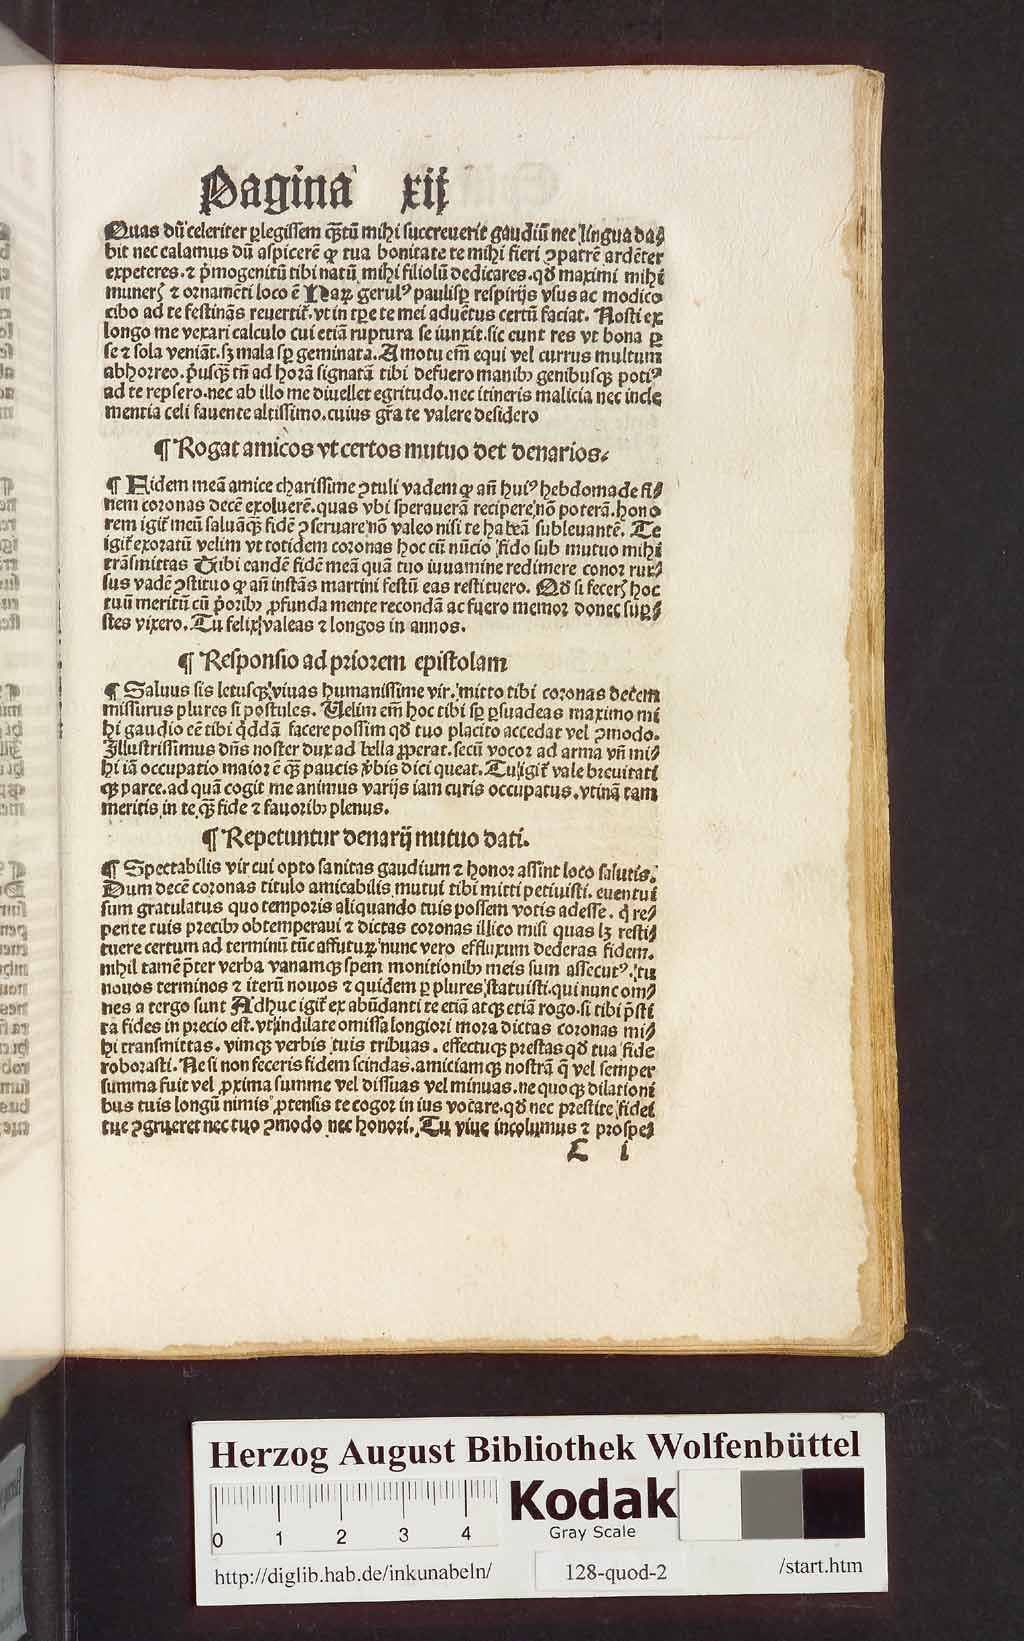 Pagina xij
Quas dū celeriter ꝑlegissem qꝫtū mihi succreuerit gaudiū nec lingua da⸗
bit nec calamus dū aspicerē ꝙ tua bonitate te mihi fieri ꝯpatrē ardēter
expeteres. ⁊ p̄mogenitū tibi natū mihi filiolū dedicares. qđ maximi mihi
munerꝭ ⁊ ornamēti loco ē Naꝫ gerulꝰ paulisꝑ respirijs vsus ac modico
cibo ad te festinās reuertit᷑. vt in tꝑe te mei aduētus certū faciat. Nosti ex
longo me vexari calculo cui etiā ruptura se iunxit. sic eunt res vt bona ꝑ
se ⁊ sola veniāt. sꝫ mala sꝑ geminata. A motu em̄ equi vel currus multum
abhorreo. p̄usqꝫ tn̄ ad horā signatā tibi defuero manibꝫ genibusqꝫ potiꝰ
ad te repsero. nec ab illo me diuellet egritudo. nec itineris malicia nec incle
mentia celi fauente altissimo. cuius gr̄a te valere desidero
¶ Rogat amicos vt certos mutuo det denarios.
¶ Fidem meā amice charissime ꝯtuli vadem ꝙ an̄ huiꝰ hebdomade fi⸗
nem coronas decē exoluerē. quas vbi speraueram recipere nō poterā. hono
rem igit᷑ meū saluāqꝫ fidē ꝯseruare nō valeo nisi te habeā subleuantē. Te
igit᷑ exoratū velim vt totidem coronas hoc cū nūcio fido sub mutuo mihi
trāsmittas Tibi eandē fidē meā quā tuo iuuamine redimere conor rur⸗
sus vadē ꝯstituo ꝙ an̄ instās martini festū eas restituero. Qđ si fecerꝭ hoc
tuū meritū cū p̄oribꝫ ꝓfunda mente recondā ac fuero memor donec suꝑ⸗
stes vixero. Tu felix valeas ⁊ longos in annos.
¶ Responsio ad priorem epistolam
¶ Saluus sis letusqꝫ viuas humanissime vir. mitto tibi coronas decem
missurus plures si postules. Uelim em̄ hoc tibi sꝑ ꝑsuadeas maximo mi
hi gaudio eē tibi q̄ddā facere possim qđ tuo placito accedat vel ꝯmodo.
Illustrissimus dn̄s noster dux ad bella ꝓperat. secū vocor ad arma vn̄ mi⸗
hi iā occupatio maior ē qꝫ paucis v̄bis dici queat. Tu igit᷑ vale breuitati
qꝫ parce. ad quā cogit me animus varijs iam curis occupatus. vtinā tam
meritis in te qꝫ fide ⁊ fauoribꝫ plenus.
¶ Repetuntur denarij mutuo dati.
¶ Spectabilis vir cui opto sanitas gaudium ⁊ honor assint loco salutis.
Dum decē coronas titulo amicabilis mutui tibi mitti petiuisti. euentui
sum gratulatus quo temporis aliquando tuis possem votis adesse. q̄ re⸗
pente tuis precibꝫ obtemperaui ⁊ dictas coronas illico misi quas lꝫ resti⸗
tuere certum ad terminū tūc affuturꝫ nunc vero effluxum dederas fidem.
nihil tamē p̄ter verba vanamqꝫ spem monitionibꝫ meis sum assecutꝰ. tu
nouos terminos ⁊ iterū nouos ⁊ quidem ꝑ plures statuisti. qui nunc om⸗
nes a tergo sunt Adhuc igit᷑ ex abūdanti te etiā atqꝫ etiā rogo. si tibi p̄sti
ta fides in precio est. vt indilate omissa longiori mora dictas coronas mi⸗
hi transmittas. vimqꝫ verbis tuis tribuas. effectuqꝫ prestas qđ tua fide
roborasti. Ne si non feceris fidem scindas. amiciamqꝫ nostrā q̄ vel semper
summa fuit vel ꝓxima summe vel dissuas vel minuas. ne quoqꝫ dilationi
bus tuis longū nimis ꝓtensis te cogor in ius vocare. qđ nec prestite fidei
tue ꝯgrueret nec tuo ꝯmodo nec honori. Tu viue incolumus ⁊ prospe⸗
C i
Herzog August Bibliothek Wolfenbüttel
0 1 2 3 4
Kodak
Gray Scale
http://diglib.hab.de/inkunabeln/ 128-quod-2 /start.htm